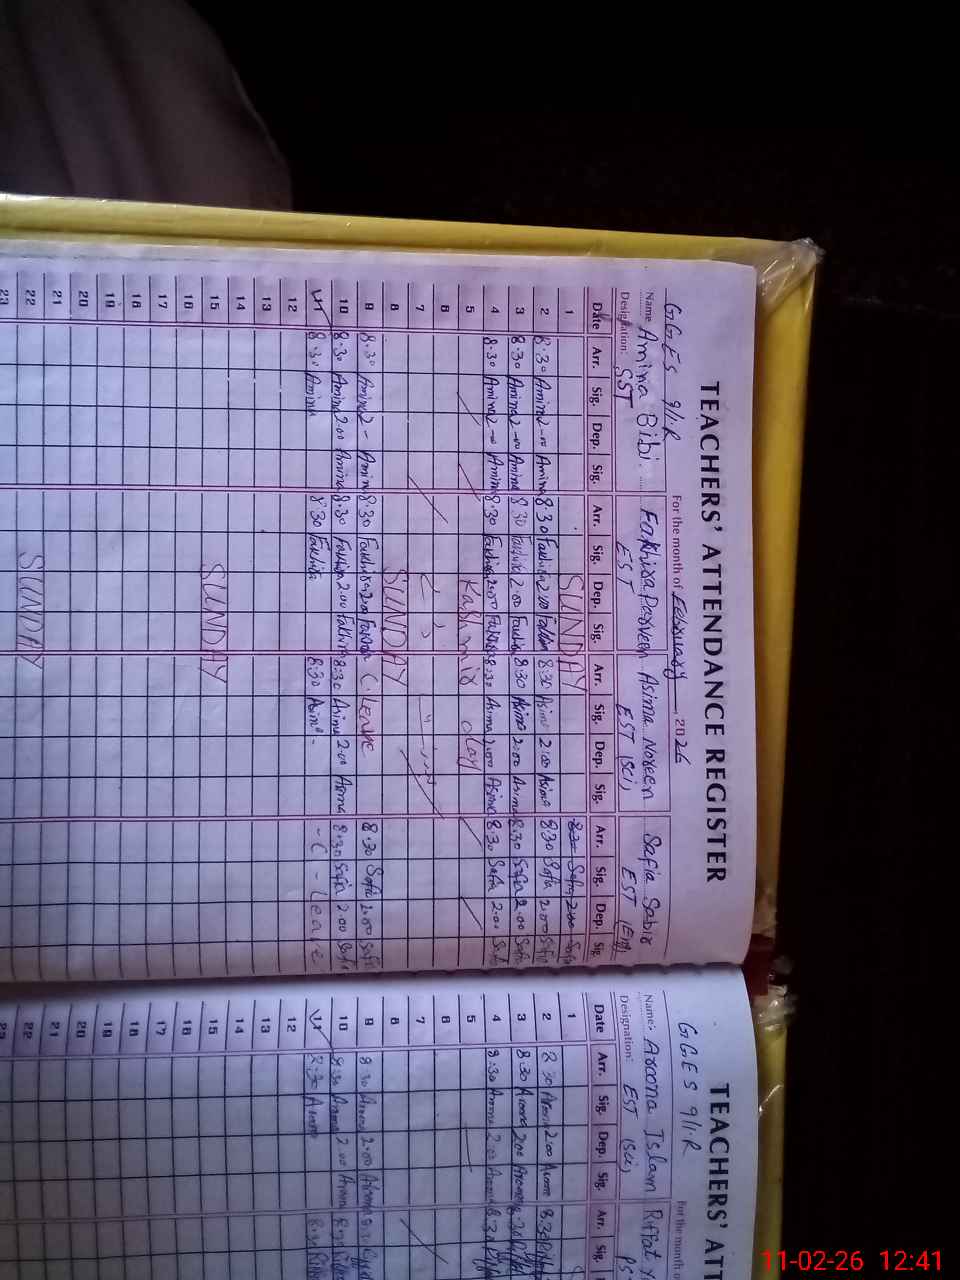 TEACHERS' ATTENDANCE REGISTER
GGES 9/1.R For the month of February, 2026
Name Amina Bibi. Fakhira Parveen Asima Noreen Safia Sabir
Designation: SST EST EST (Sci) EST (Eng)
Date Arr. Sig. Dep. Sig. Arr. Sig. Dep. Sig. Arr. Sig. Dep. Sig. Arr. Sig. Dep. Sig.
1 SUNDAY 8:30 Safia 2:00 Safia
2 8:30 Amina 2-00 Amina 8:30 Fakhira 2:00 Fakhira 8:30 Asima 2:00 Asima 8:30 Safia 2:00 Safia
3 8:30 Amina 2-00 Amina 8:30 Fakhira 2:00 Fakhira 8:30 Asima 2:00 Asima 8:30 Safia 2:00 Safia
4 8:30 Amina 2-00 Amina 8:30 Fakhira 2:00 Fakhira 8:30 Asima 2:00 Asima 8:30 Safia 2:00 Safia
5 Kashmir day
6
7
8 SUNDAY
9 8:30 Amina 2- Amina 8:30 Fakhira 2:00 Fakhira C. Leave 8:30 Safia 2:00 Safia
10 8:30 Amina 2:00 Amina 8:30 Fakhira 2:00 Fakhira 8:30 Asima 2:00 Asima 8:30 Safia 2:00 Safia
8:30 Amina 8:30 Fakhira 8:30 Asima - C - Leave
12
13
14
15 SUNDAY
16
17
18
19
20
21
22 SUNDAY
23
TEACHERS' ATT
GGES 9/1.R For the month o
Name: Arooma Islam Riffat
Designation: EST (Sci)
Date Arr. Sig. Dep. Sig. Arr. Sig.
1
2 8:30 Arooma 2:00 Arooma 8:30
3 8:30 Arooma 2:00 Arooma 8:30
4 8:30 Arooma 2:00 Arooma 8:30
5
6
7
8
9 8:30 Arooma 2:00 Arooma
10 8:30 Arooma 2:00 Arooma 8:30
8:30 Arooma 8:30
12
13
14
15
16
17
18
19
20
21
22
23
11-02-26 12:41